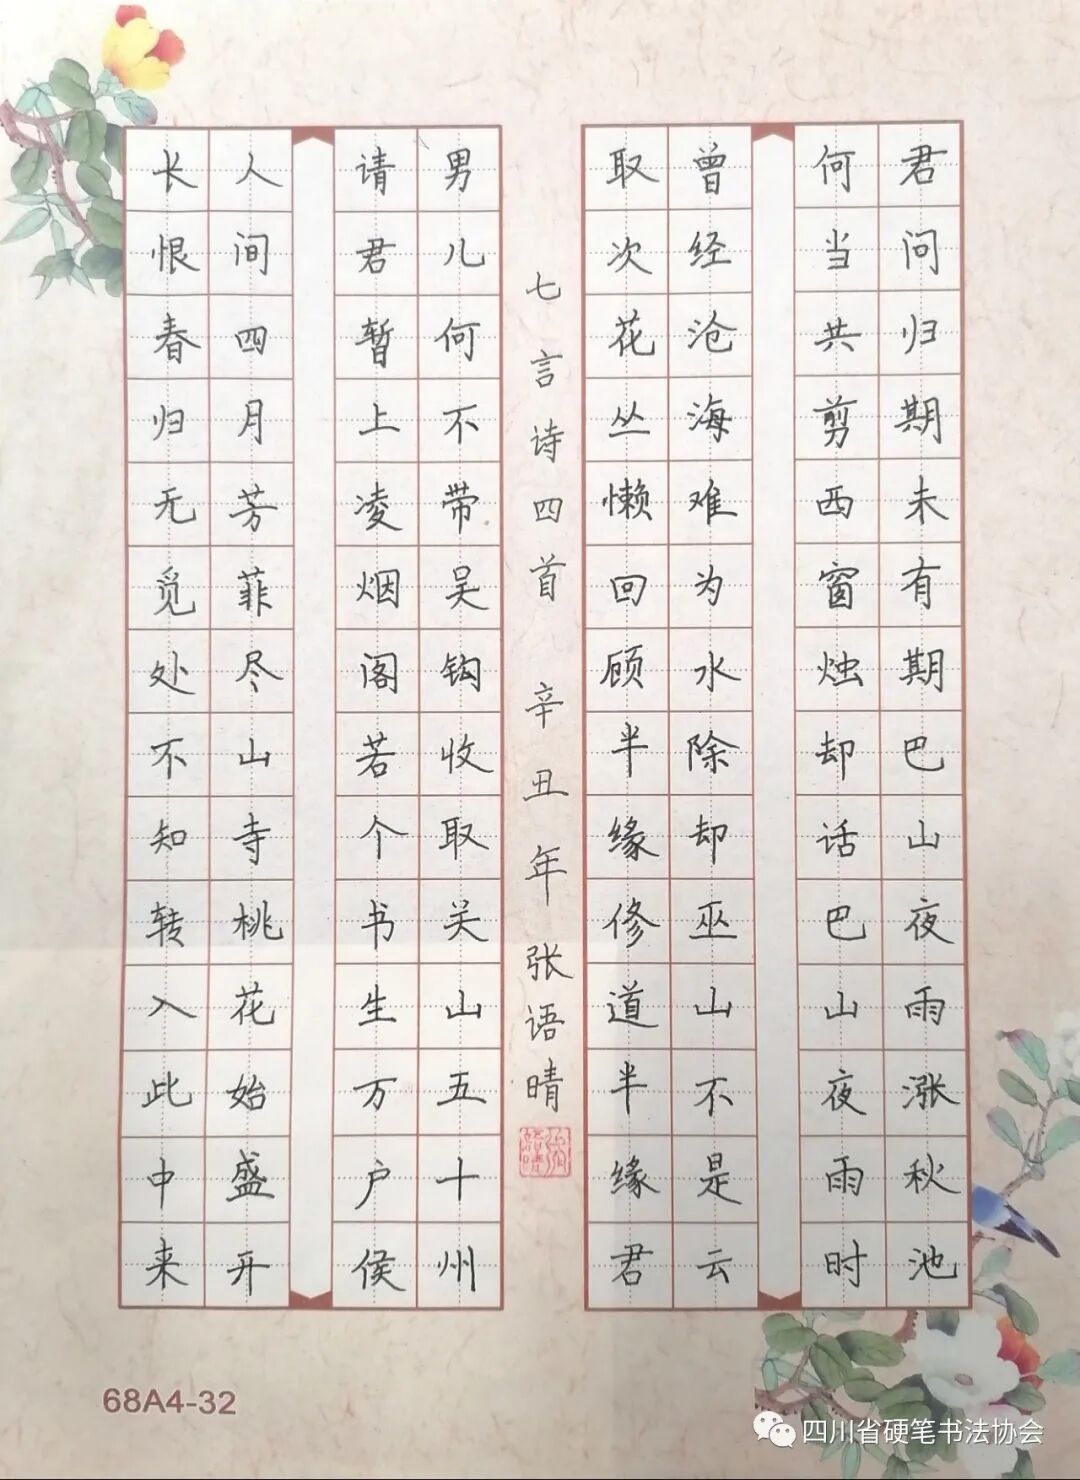 君问归期未有期巴山夜雨涨秋池
何当共剪西窗烛却话巴山夜雨时
曾经沧海难为水除却巫山不是云
取次花丛懒回顾半缘修道半缘君
七言诗四首 辛丑年张语晴
男儿何不带吴钩收取关山五十州
请君暂上凌烟阁若个书生万户侯
人间四月芳菲尽山寺桃花始盛开
长恨春归无觅处不知转入此中来
68A4-32
四川省硬笔书法协会